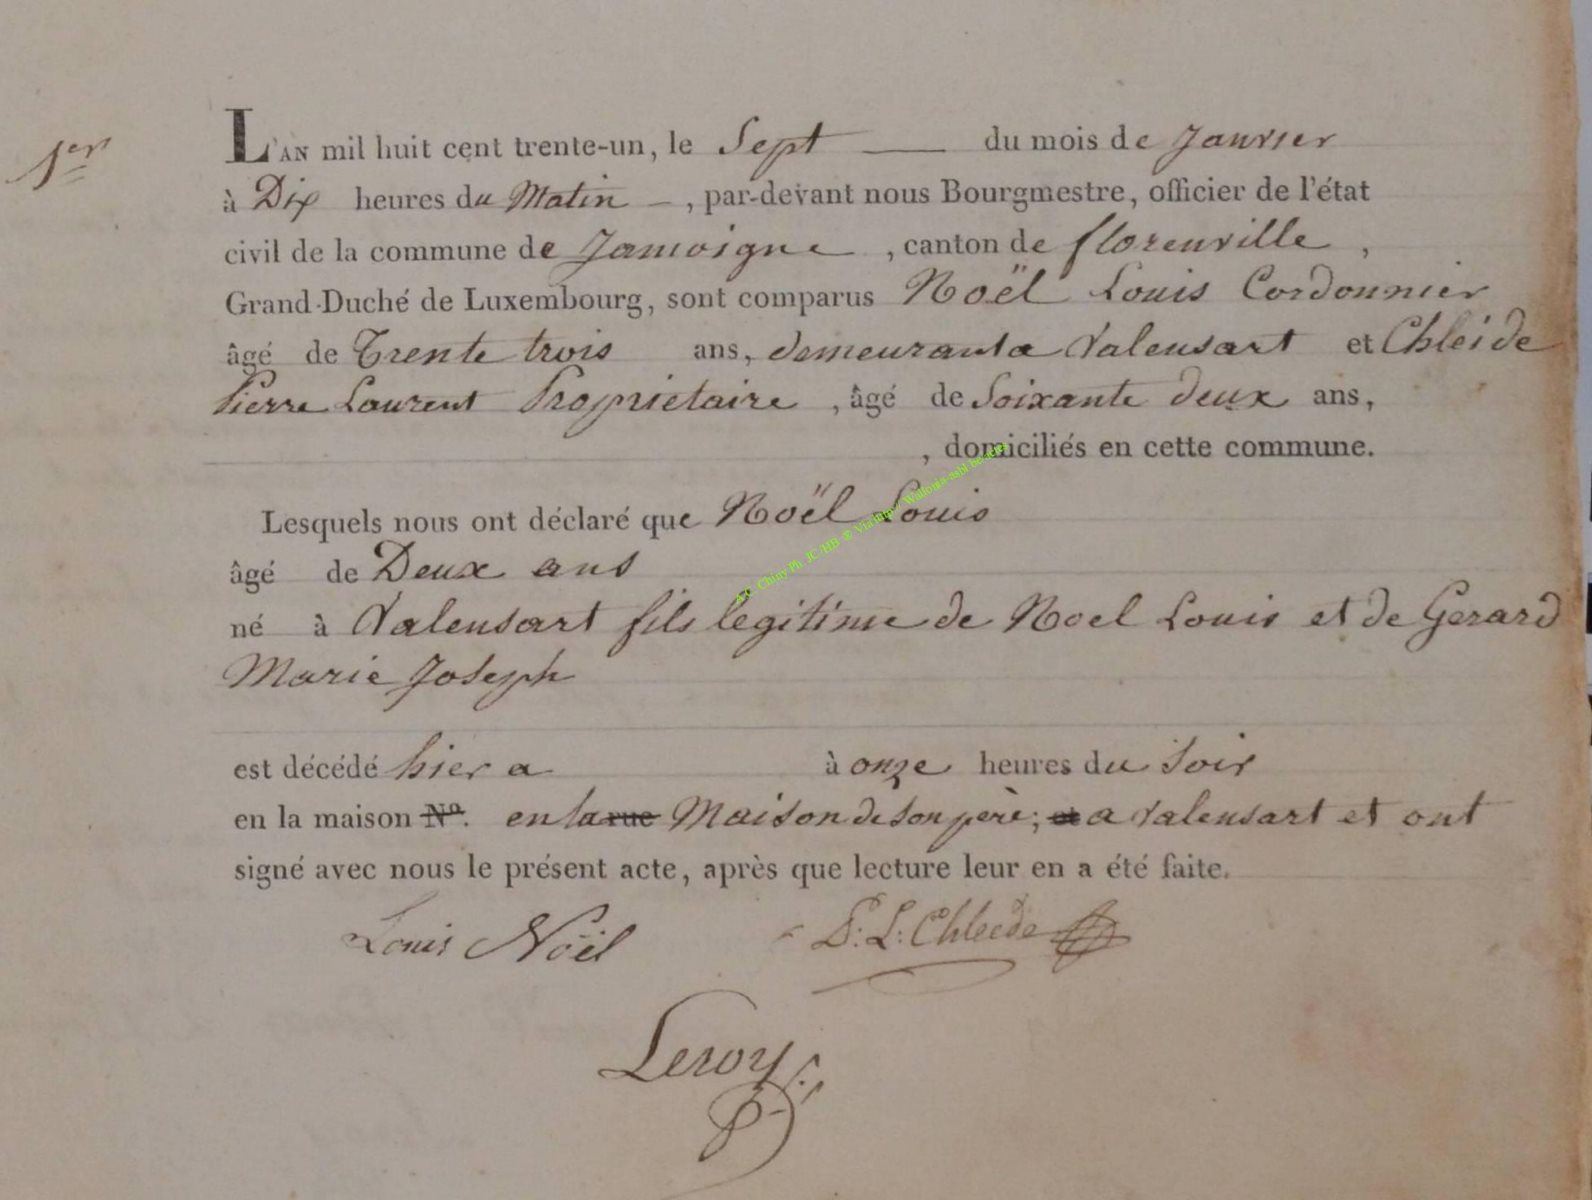 1er
L'AN mil huit cent trente-un, le Sept — du mois de Janvier
à Dix heures du Matin –, par-devant nous Bourgmestre, officier de l'état
civil de la commune de Jamoigne, canton de florenville,
Grand-Duché de Luxembourg, sont comparus Noël Louis Cordonnier
âgé de Trente trois ans, demeurant a Valensart et Chleide
Pierre Laurent Propriétaire, âgé de Soixante deux ans,
, domiciliés en cette commune.
Lesquels nous ont déclaré que Noël Louis
âgé de Deux ans
né à Valensart fils legitime de Noel Louis et de Gerard
Marie Joseph
est décédé hier a à onze heures du Soir
en la maison N°. en la rue Maison de son père, a Valensart et ont
signé avec nous le présent acte, après que lecture leur en a été faite.
Louis Noël P: L: Chleide
Leroy
A.C. Chiny Ph. JC HB © Via http://Wallonia-asbl.be